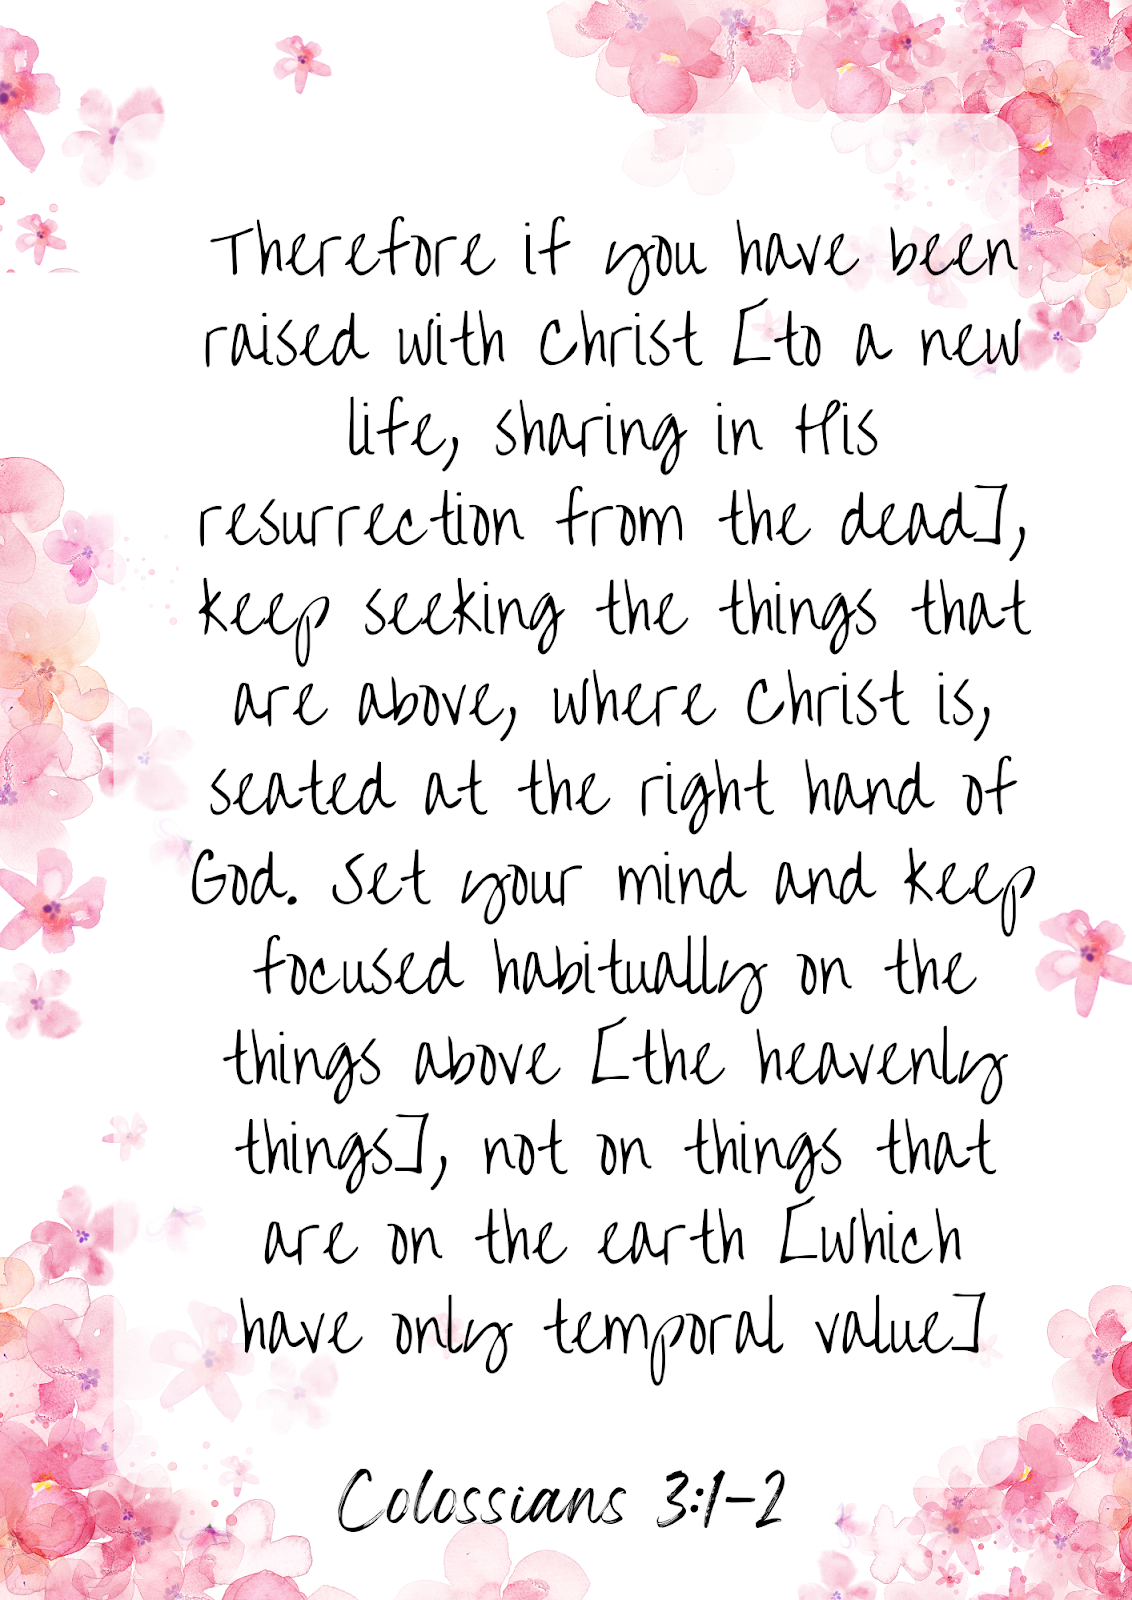 Therefore if you have been
raised with Christ [to a new
life, sharing in His
resurrection from the dead],
keep seeking the things that
are above, where Christ is,
seated at the right hand of
God. Set your mind and keep
focused habitually on the
things above [the heavenly
things], not on things that
are on the earth [which
have only temporal value]
Colossians 3:1-2